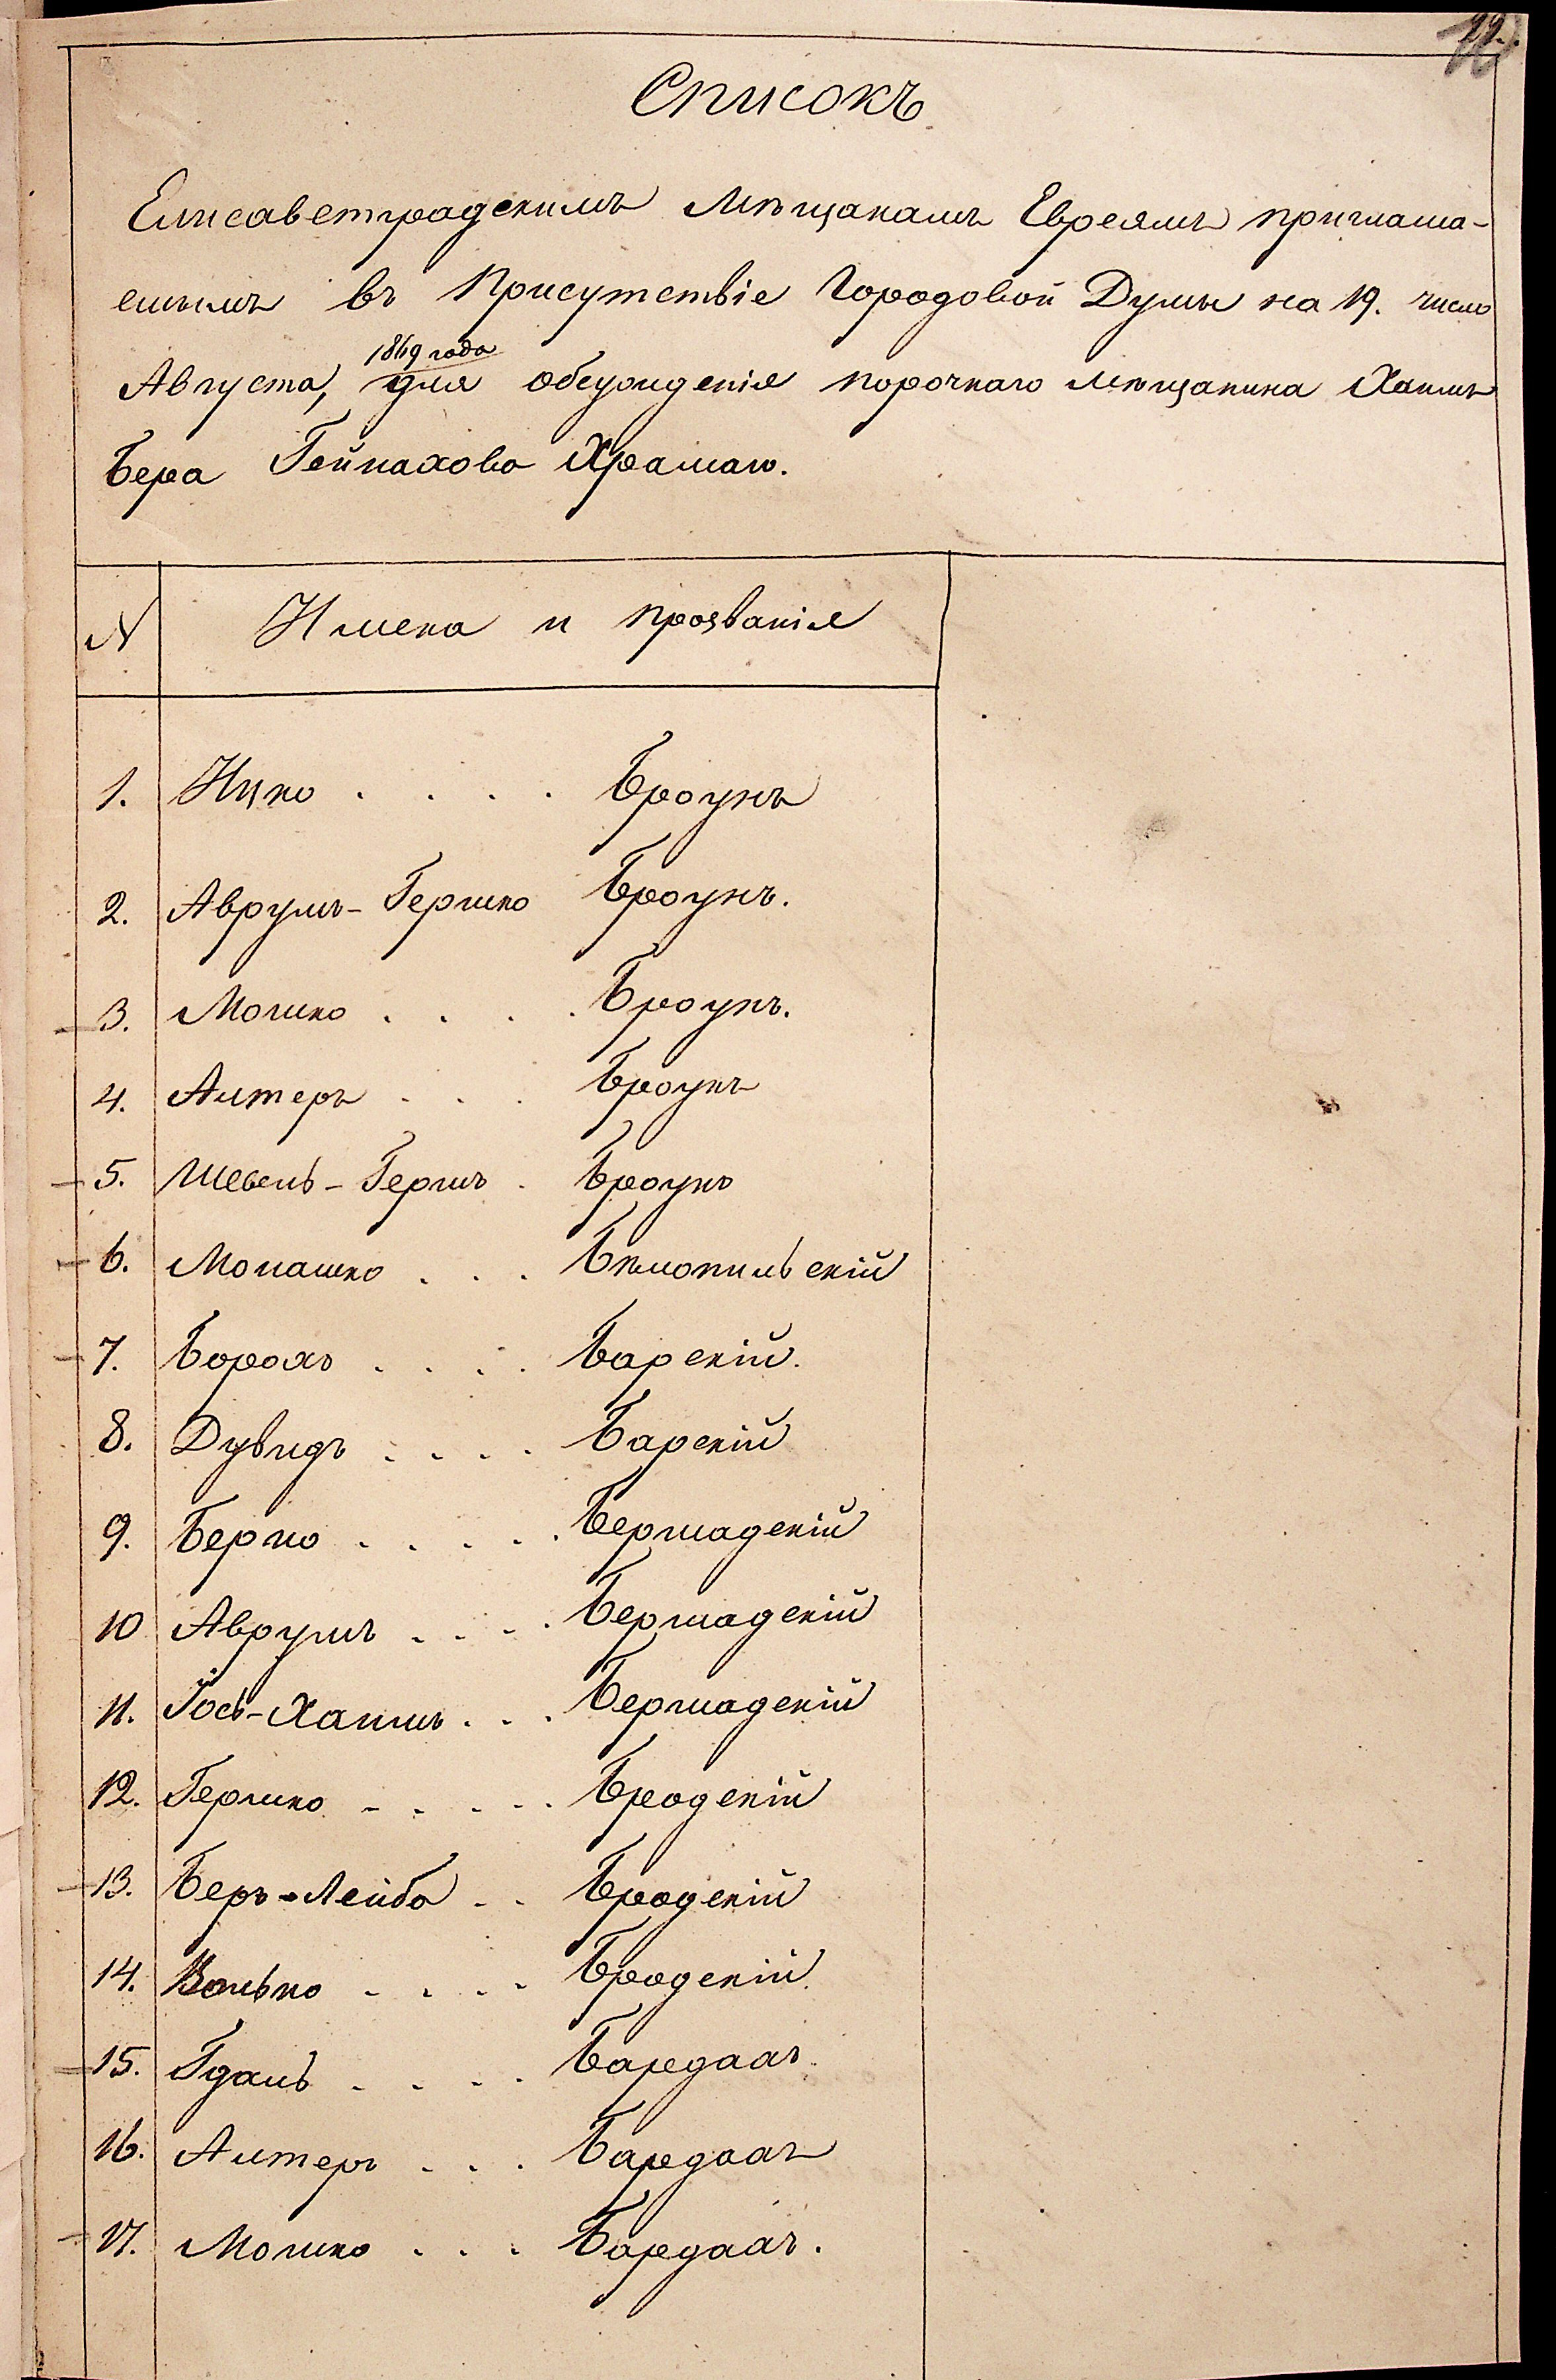 22.
Списокъ
Елисаветградскимъ Мѣщанамъ Евреямъ приглаша-
емымъ въ Присутствіе Городовой Думы на 19. число
1869 года
Августа, для обсужденія порочнаго мѣщанина Хаимъ
Бера Гейнахова Храмаго.
№ Имена и прозванія
1. Ицко . . . . Броунъ
2. Аврумъ-Гершко Броунъ.
3. Мошко . . . . Броунъ.
4. Алтеръ . . . Броунъ
5. Шевель-Гершъ . Броунъ
6. Монашко . . . Бѣлопильскій
7. Борохъ . . . . Барскій.
8. Дувидъ . . . . Барскій
9. Берко . . . . . Бершадскій
10 Аврумъ . . . . Бершадскій
11. Іось-Хаимъ . . . Бершадскій
12. Гершко . . . . . Бродскій
13. Беръ-Лейба . . Бродскій
14. Волько . . . . Бродскій
15. Гдаль . . . . Баредааъ
16. Алтеръ . . . Баредааъ
17. Мошко . . . Баредааъ.